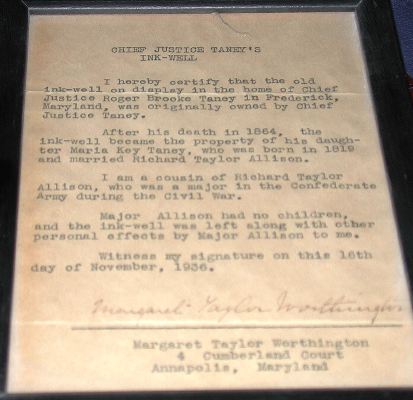 CHIEF JUSTICE TANEY'S
INK-WELL
I hereby certify that the old
ink-well on display in the home of Chief
Justice Roger Brooke Taney in Frederick,
Maryland, was originally owned by Chief
Justice Taney.
After his death in 1864, the
ink-well became the property of his daugh-
ter Maria Key Taney, who was born in 1819
and married Richard Taylor Allison.
I am a cousin of Richard Taylor
Allison, who was a major in the Confederate
Army during the Civil War.
Major Allison had no children,
and the ink-well was left along with other
personal effects by Major Allison to me.
Witness my signature on this 16th
day of November, 1936.
Margaret Taylor Worthington
Margaret Taylor Worthington
4 Cumberland Court
Annapolis, Maryland